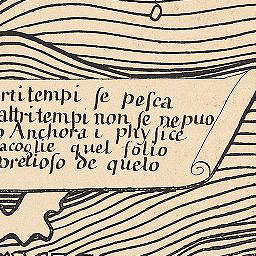 rti tempi se pesca
altri tempi non se ne puo
o Anchora i physice
acoglie quel folio
pretioso de quelo